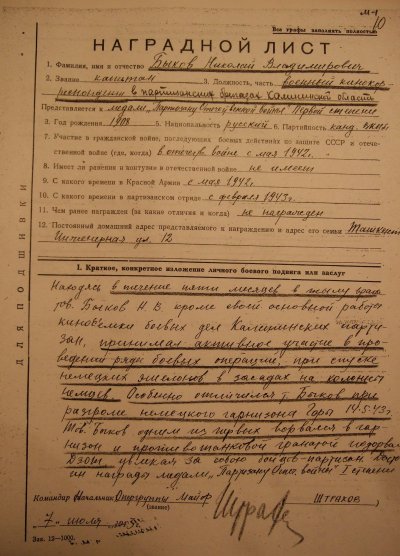 10
Все графы заполнять полностью
НАГРАДНОЙ ЛИСТ
1. Фамилия, имя и отчество Быков Николай Владимирович
2. Звание капитан 3. Должность, часть военный кинокор-
респондент в партизанских бригадах Калининской области
Представляется к медали „Партизану Отечественной войны" Первой степени
3. Год рождения 1908 5. Национальность русский 6. Партийность канд. ВКП(б)
7. Участие в гражданской войне, последующих боевых действиях по защите СССР и отече-
ственной войне (где, когда) в отечеств. войне с мая 1942 г.
8. Имеет ли ранения и контузии в отечественной войне не имеет
9. С какого времени в Красной Армии с мая 1942 г.
10. С какого времени в партизанском отряде с февраля 1943 г.
11. Чем ранее награжден (за какие отличия и когда) не награжден
12. Постоянный домашний адрес представляемого к награждению и адрес его семьи Ташкент
Инженерная ул. 12
ДЛЯ ПОДШИВКИ
I. Краткое, конкретное изложение личного боевого подвига или заслуг
Находясь в течение пяти месяцев в тылу врага
тов. Быков Н. В. кроме своей основной работы
киносъемки боевых дел Калининских парти-
зан, принимал активное участие в про-
ведении ряда боевых операций, при спуске
немецких эшелонов в засадах на колонны
немцев. Особенно отличился т. Быков при
разгроме немецкого гарнизона Горы 14.5.43 г.
Тов. Быков одним из первых ворвался в гар-
низон и противотанковой гранатой подорвал
Дзот, увлекая за собой бойцов-партизан. Дост
ин награды медали „Партизану Отеч. войны" I степени
Командир Начальник Опергруппы Майор ШТРАХОВ
(звание)
7 июля
Зак. 12—1000.